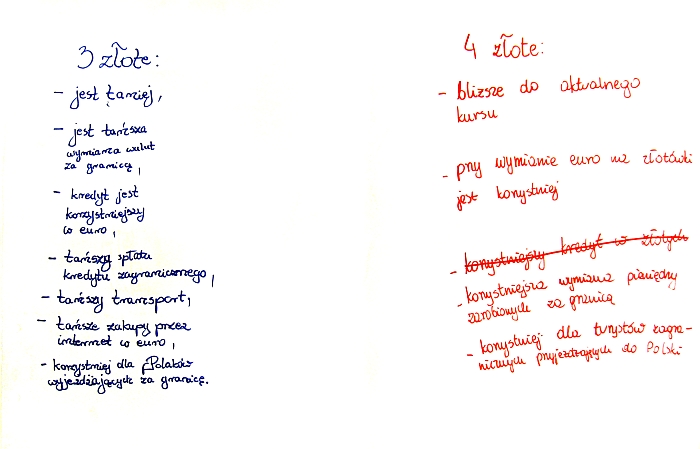 3 złote:
- jest taniej,
- jest tańsza
wymiana walut
za granicą,
- kredyt jest
korzystniejszy
w euro,
- tańszy spłata
kredytu zagranicznego,
- tańszy transport,
- tańsze zakupy przez
internet w euro,
- korzystniej dla Polaków
wyjeżdżających za granicę.
4 złote:
- bliższe do aktualnego
kursu
- przy wymianie euro na złotówki
jest korzystniej
- korzystniejszy kredyt w złotych
- korzystniejsza wymiana pieniędzy
zarobionych za granicą
- korzystniej dla turystów zagra-
nicznych przyjeżdżających do Polski